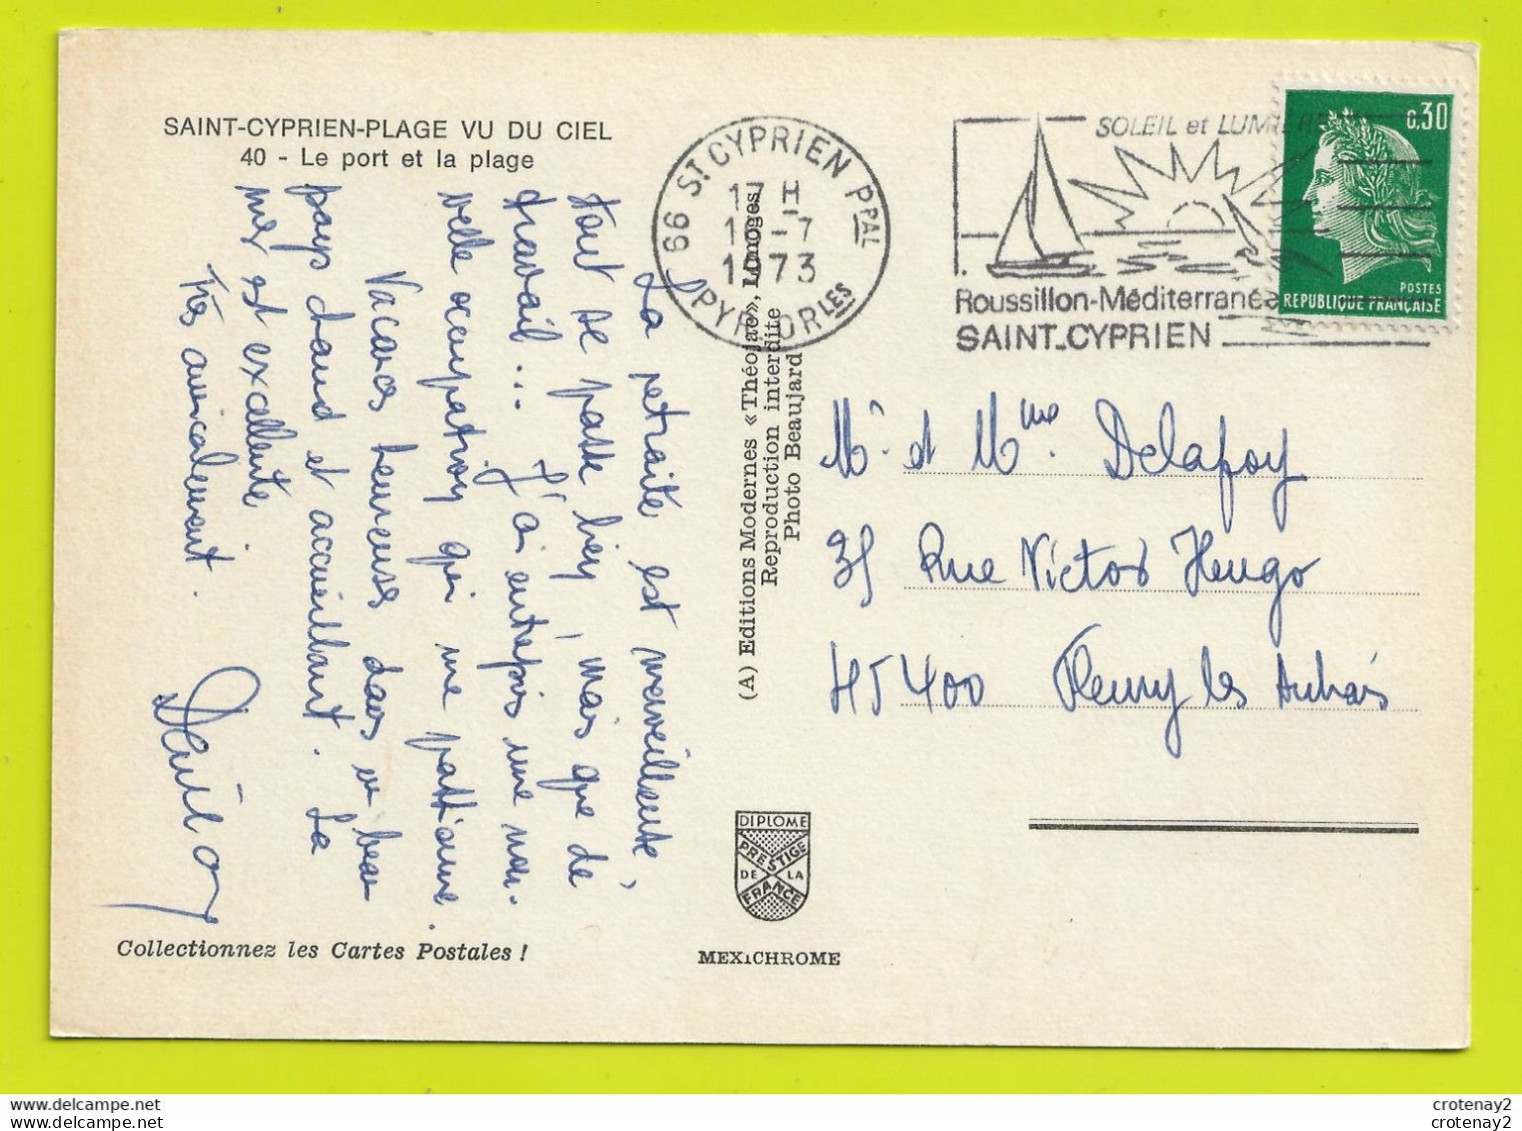 SAINT-CYPRIEN-PLAGE VU DU CIEL
40 - Le port et la plage
La retraite est merveilleuse,
tout se passe bien, mais que de
travail... J'ai entrepris une nou-
velle occupation qui me passionne.
Vacances heureuses dans un beau
pays chaud et accueillant. La
mer est excellente
Très amicalement.
Collectionnez les Cartes Postales !
(A) Editions Modernes « Théojac », Limoges
Reproduction interdite
Photo Beaujard
DIPLOME
PRESTIGE
DE LA
FRANCE
MEXICHROME
66 ST CYPRIEN PPAL
17 H
-7
1973
PYR. ORLES
SOLEIL et LUMIERE
Roussillon-Méditerranée
SAINT-CYPRIEN
0,30
POSTES
REPUBLIQUE FRANÇAISE
Mr et Mme Delapoy
35 Rue Victor Hugo
45400 Fleury les Aubrais
crotenay2
crotenay2
crotenay2
crotenay2